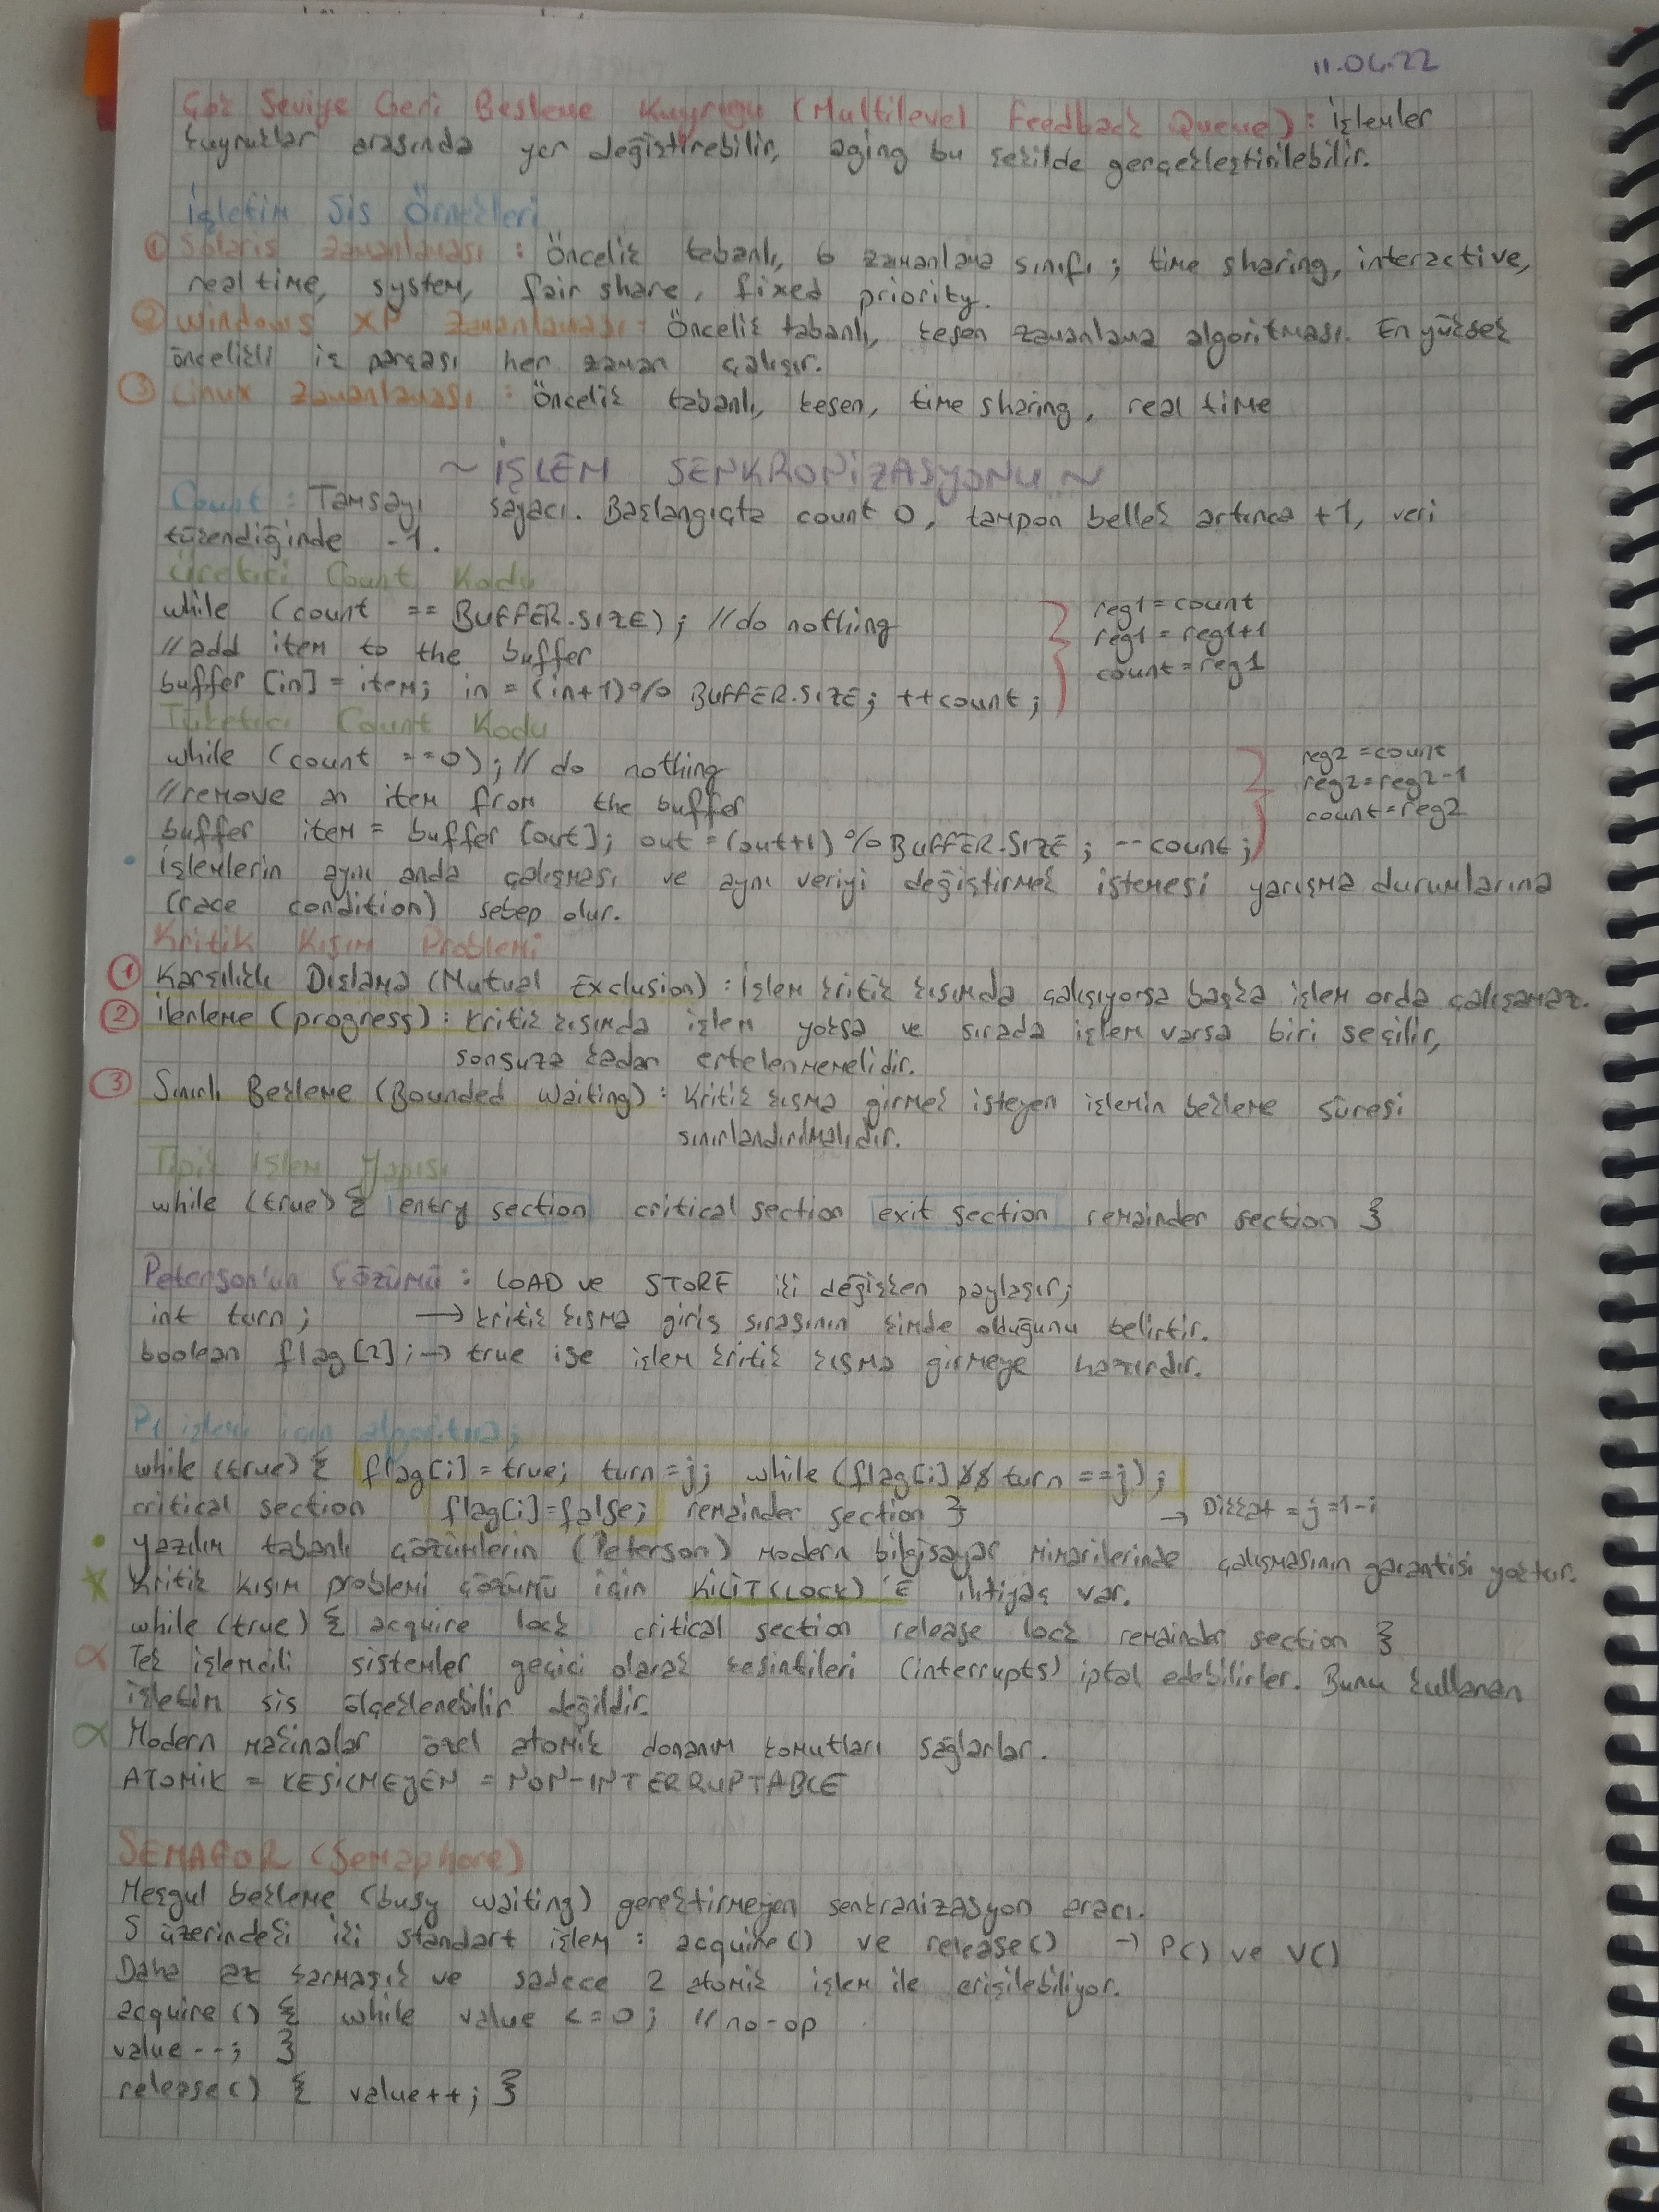 11.04.22
Çok Seviye Geri Besleme Kuyruğu (Multilevel Feedback Queue) : işlemler
kuyruklar arasında yer değiştirebilir, aging bu şekilde gerçekleştirilebilir.
İşletim Sis Örnekleri
① Solaris Zamanlaması : Öncelik tabanlı, 6 zamanlama sınıfı ; time sharing, interactive,
real time, system, fair share, fixed priority.
② Windows XP Zamanlaması : Öncelik tabanlı, kesen zamanlama algoritması. En yüksek
öncelikli iş parçası her zaman çalışır.
③ Linux Zamanlaması : Öncelik tabanlı, kesen, time sharing, real time
~ İŞLEM SENKRONİZASYONU ~
Count : Tamsayı sayacı. Başlangıçta count 0, tampon bellek artınca +1, veri
tükendiğinde -1.
Üretici Count Kodu
while (count == BUFFER.SIZE) ; //do nothing
//add item to the buffer
buffer [in] = item; in = (in+1)% BUFFER.SIZE; ++count ;
reg1 = count
reg1 = reg1+1
count = reg1
Tüketici Count Kodu
while (count ==0) ; // do nothing
//remove an item from the buffer
buffer item = buffer [out]; out = (out+1) % BUFFER.SIZE ; --count ;
reg2 = count
reg2 = reg2-1
count = reg2
• İşlemlerin aynı anda çalışması ve aynı veriyi değiştirmek istemesi yarışma durumlarına
(race condition) sebep olur.
Kritik Kısım Problemi
① Karşılıklı Dışlama (Mutual Exclusion) : İşlem kritik kısımda çalışıyorsa başka işlem orda çalışamaz.
② ilerleme (progress) : kritik kısımda işlem yoksa ve sırada işlem varsa biri seçilir,
sonsuza kadar ertelenmemelidir.
③ Sınırlı Bekleme (Bounded Waiting) : Kritik kısma girmek isteyen işlemin bekleme süresi
sınırlandırılmalıdır.
Tipik İşlem Yapısı
while (true) { entry section critical section exit section remainder section }
Peterson'un Çözümü : LOAD ve STORE iki değişken paylaşır;
int turn ; → kritik kısma giriş sırasının kimde olduğunu belirtir.
boolean flag [2] ; → true ise işlem kritik kısma girmeye hazırdır.
Pi işlemi için algoritma;
while (true) { flag[i] = true; turn = j; while (flag[i] && turn == j) ;
critical section flag[i] = false; remainder section }
→ Dikkat = j = 1-i
• yazılım tabanlı çözümlerin (Peterson) modern bilgisayar mimarilerinde çalışmasının garantisi yoktur.
* Kritik kısım problemi çözümü için KİLİT (LOCK) 'E ihtiyaç var.
while (true) { acquire lock critical section release lock remainder section }
α Tek işlemcili sistemler geçici olarak kesintileri (interrupts) iptal edebilirler. Bunu kullanan
işletim sis ölçeklenebilir değildir.
α Modern makinalar özel atomik donanım komutları sağlarlar.
ATOMİK = KESİLMEYEN = NON-INTERRUPTABLE
SEMAFOR (Semaphore)
Meşgul bekleme (busy waiting) gerektirmeyen senkranizasyon aracı.
S üzerindeki iki standart işlem : acquire() ve release() → P() ve V()
Daha az karmaşık ve sadece 2 atomik işlem ile erişilebiliyor.
acquire () { while value <= 0 ; //no-op
value --; }
release() { value++ ; }